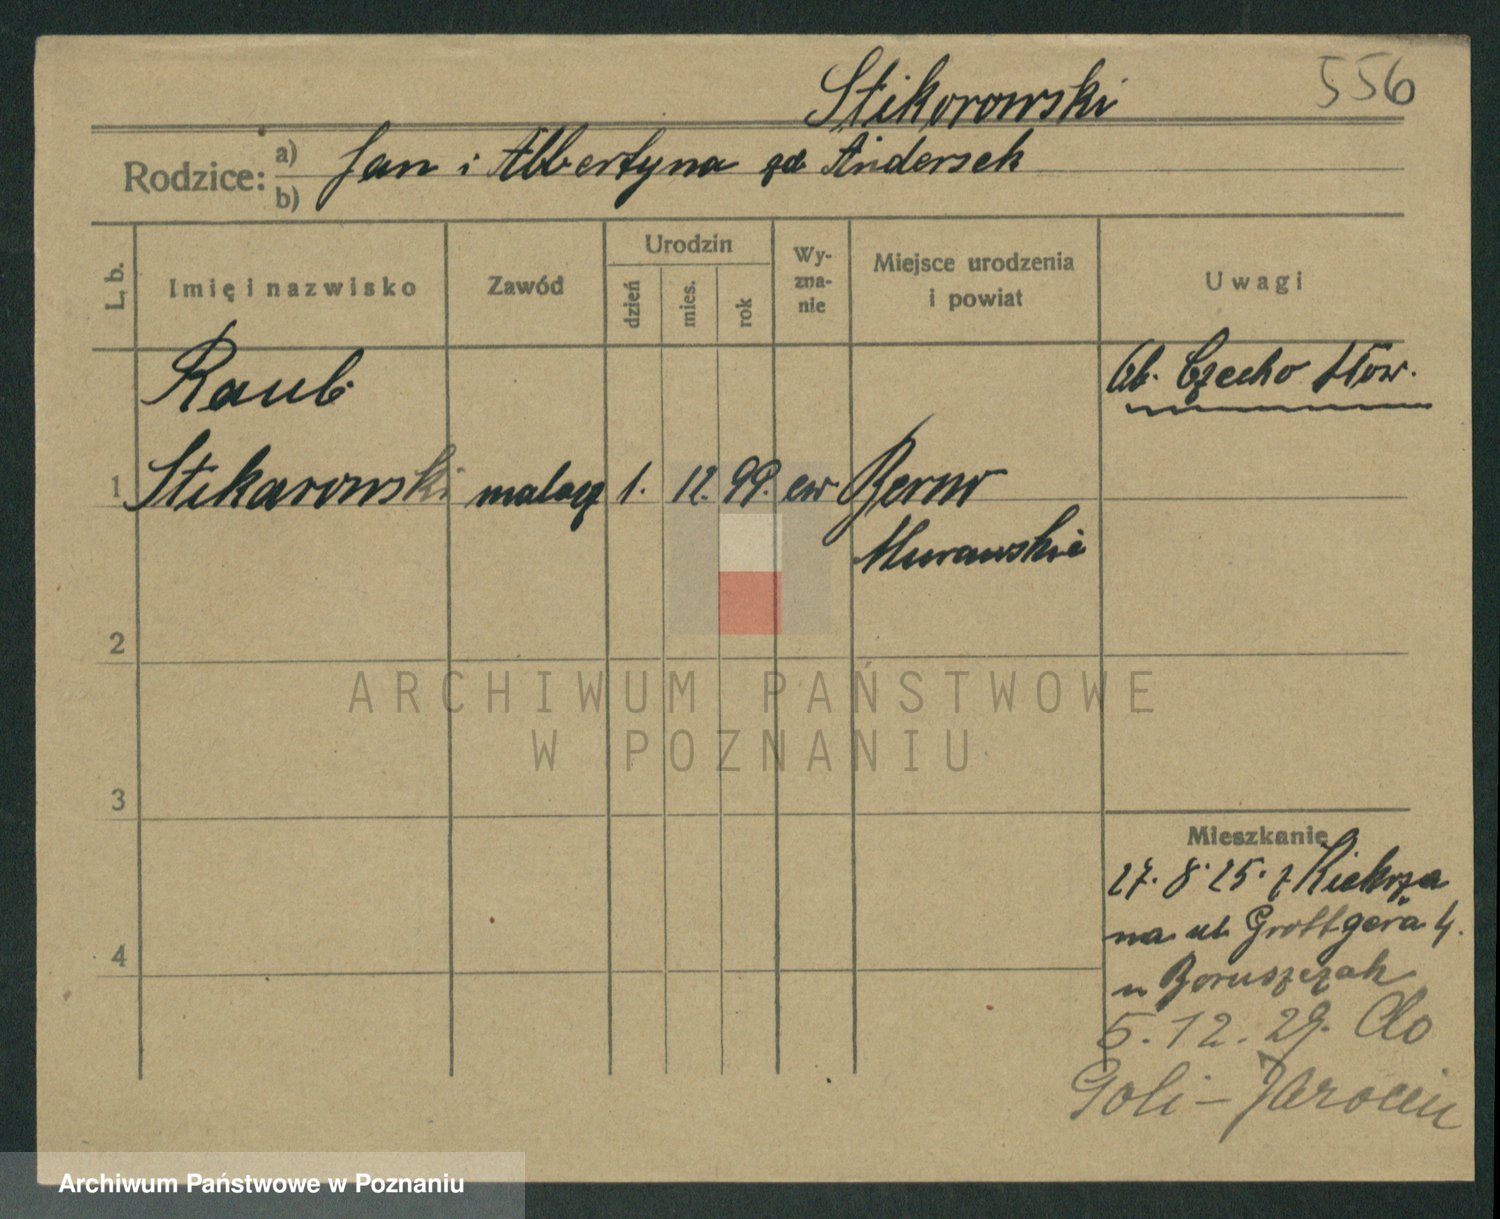 556
Stikorowski
Rodzice: a) b) Jan i Albertyna zd Andersek
L. b.
Imię i nazwisko
Zawód
Urodzin
dzień
mies.
rok
Wy-
zna-
nie
Miejsce urodzenia
i powiat
Uwagi
Raub
Ob. Czecho słow.
1 Stikarowski malarz 1. 12. 99. ew Berno
Murawskie
2
3
4
Mieszkanie
27. 8. 25. z Kiekrza
na ul. Grottgera 4.
u Boruszczak
5. 12. 29. Do
Goli - Jarocin
ARCHIWUM PAŃSTWOWE
W POZNANIU
Archiwum Państwowe w Poznaniu